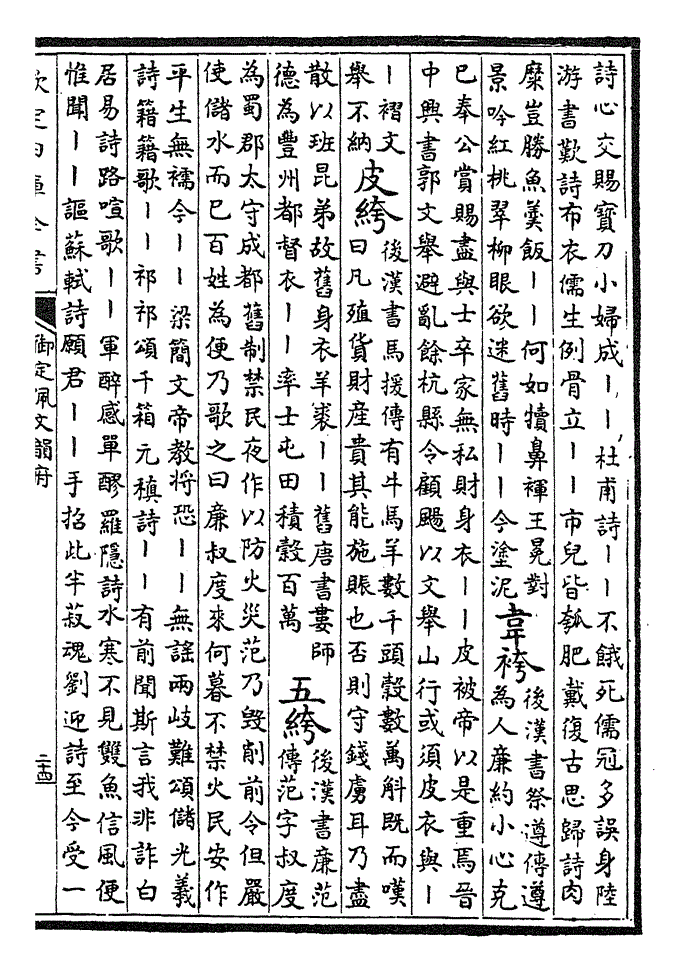 詩心交賜寶刀小婦成丨丨杜甫詩丨丨不餓死儒冠多誤身陸
游書歎詩布衣儒生例骨立丨丨市兒皆瓠肥戴復古思歸詩肉
糜豈勝魚羹飯丨丨何如犢鼻褌王冕對
景吟紅桃翠柳眼欲迷舊時丨丨今塗泥
韋袴
後漢書祭遵傳遵
為人廉約小心克
已奉公賞賜盡與士卒家無私財身衣丨丨皮被帝以是重焉晉
中興書郭文舉避亂餘杭縣令顧颺以文舉山行或須皮衣與丨
丨褶文
舉不納
皮絝
後漢書馬援傳有牛馬羊數千頭穀數萬斛既而嘆
曰凡殖貨財産貴其能施賑也否則守錢虜耳乃盡
散以班昆弟故舊身衣羊裘丨丨舊唐書婁師
德為豐州都督衣丨丨率士屯田積穀百萬
五絝
後漢書廉范
傳范字叔度
為蜀郡太守成都舊制禁民夜作以防火災范乃毀削前令但嚴
使儲水而已百姓為便乃歌之曰廉叔度來何暮不禁火民安作
平生無襦今丨丨 梁簡文帝教將恐丨丨無謠兩岐難頌儲光羲
詩籍籍歌丨丨祁祁頌千箱元稹詩丨丨有前聞斯言我非詐白
居易詩路喧歌丨丨軍醉感單醪羅隱詩水寒不見雙魚信風便
惟聞丨丨謳蘇軾詩願君丨丨手招此半菽魂劉迎詩至今受一
欽定四庫全書
御定佩文韻府
二十四